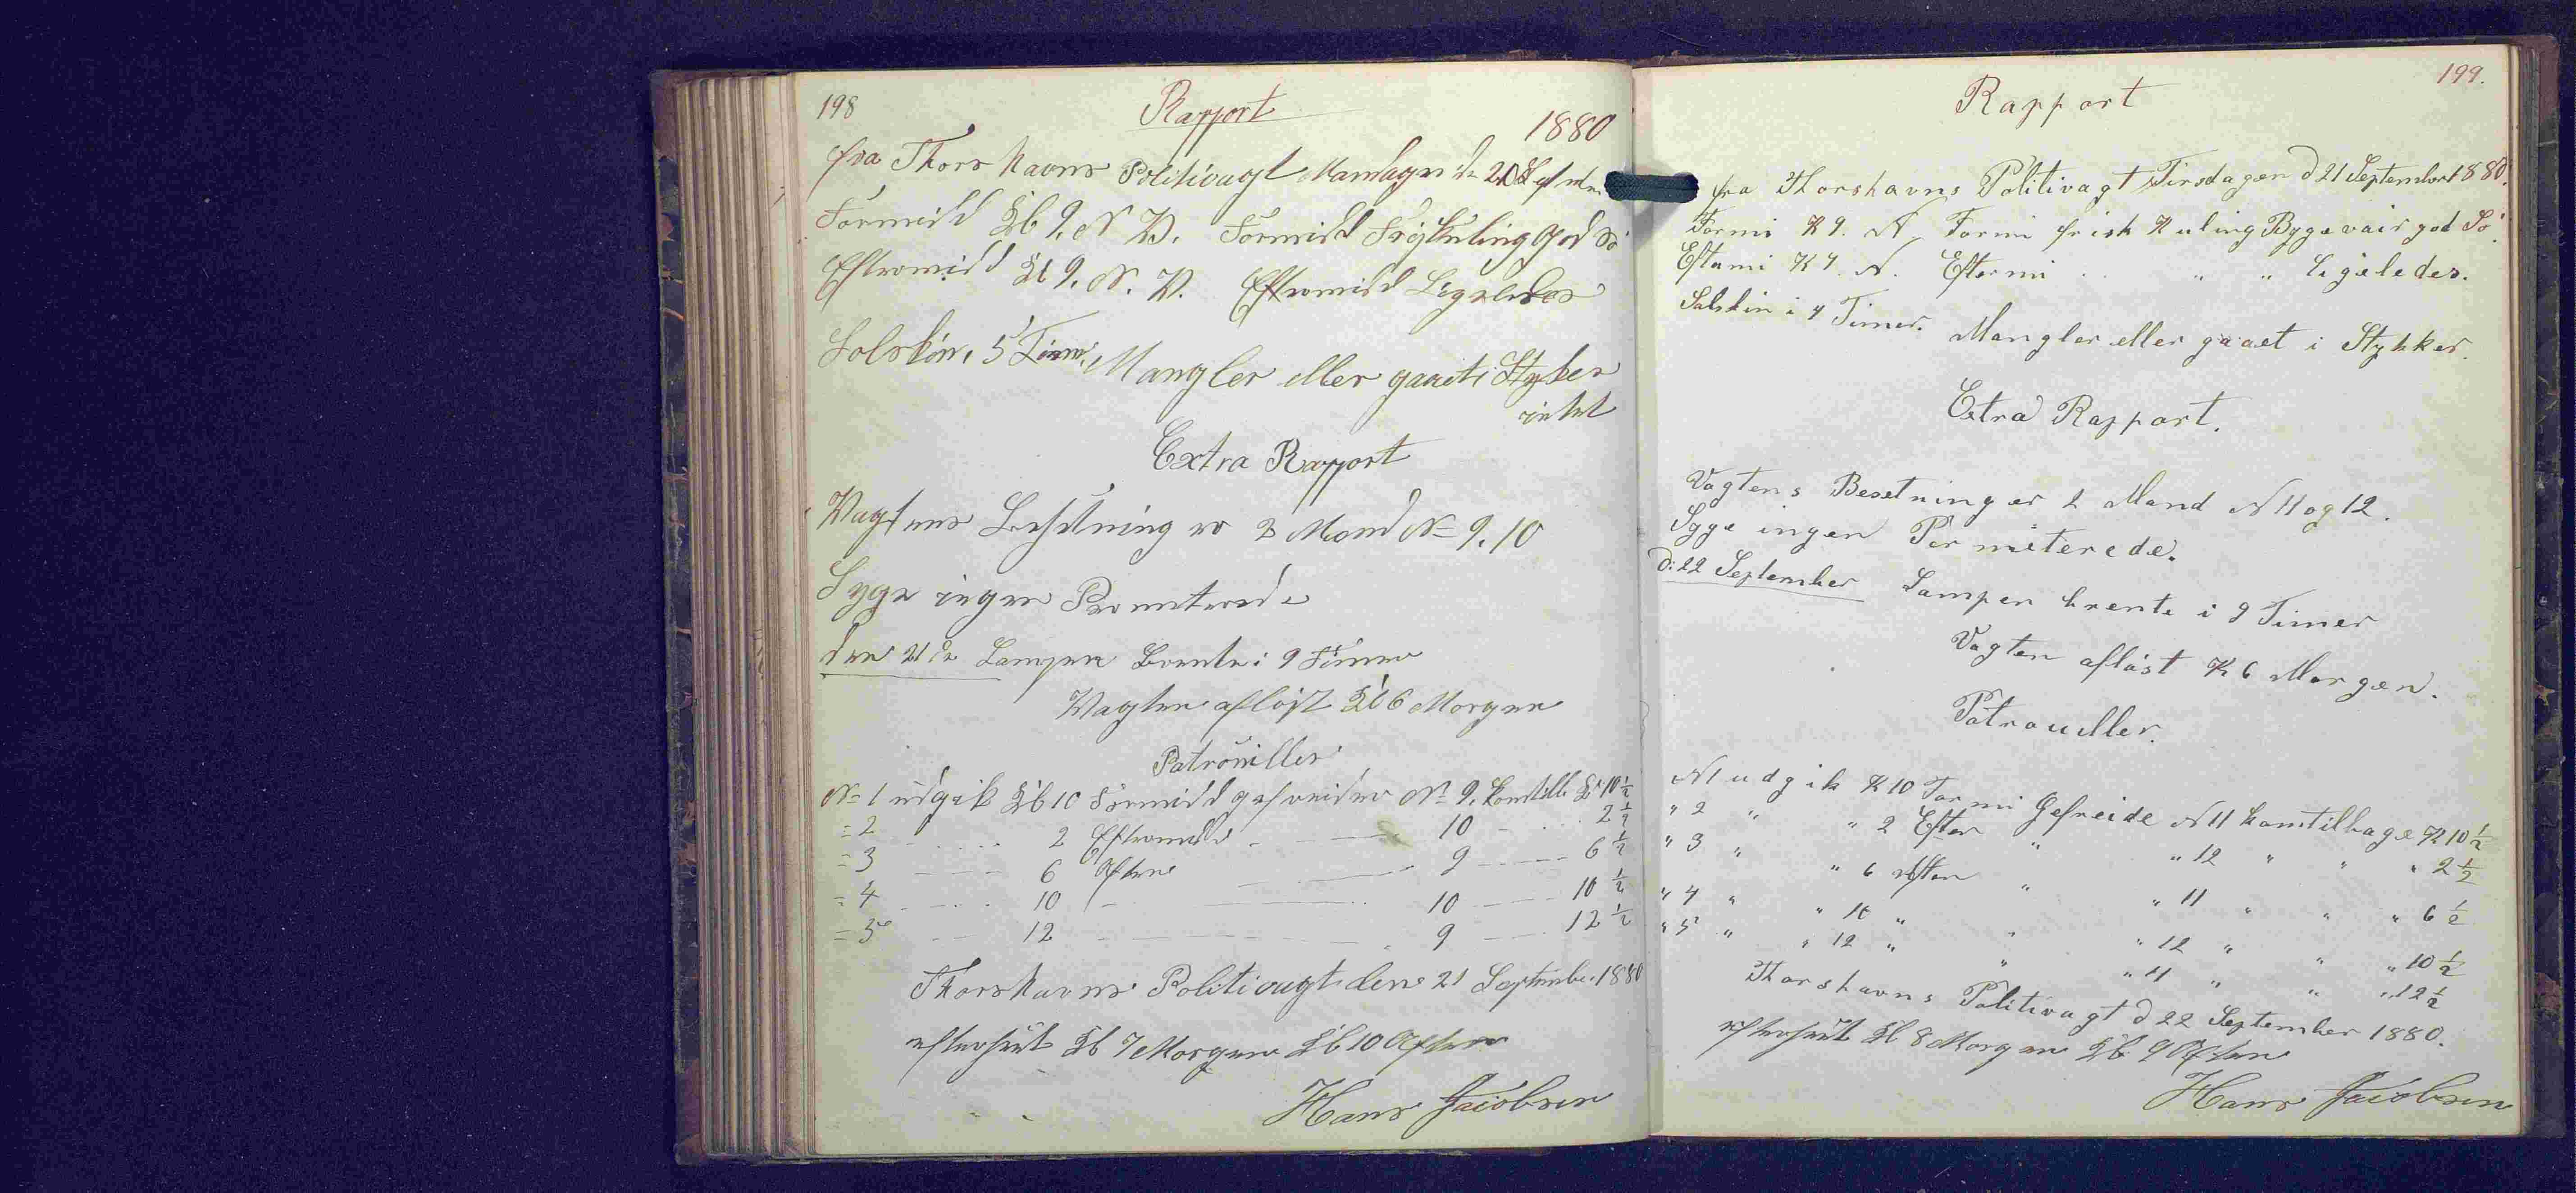 198
Rapport
1880
fra Thorshavns Politivagt Mandagen d. 20 Septembr
Formidd Kl 9. N V. Formidd Frisk Kuling god Sö
Eftermidd Kl 9. N. V. Eftermidd Ligeledes
Solskin, 5 Timer, Mangler eller gaaet i Styker
intet
Extra Rapport
Vagtens Besetning er 2 Mand No 9. 10
Syge ingen Permeterede
den 21de Lampen Brente i 9 Timer
Vagten aflöst Kl 6 Morgen
Patrouiller
No 1 udgik Kl 10 Formidd gefreider No 9. komtilb Kl 10 1/2
= 2 2 Eftermidd 10 2 1/2
= 3 6 Aften 9 6 1/2
= 4 10 10 10 1/2
= 5 12 9 12 1/2
Thorshavns Politivagt den 21 September 1880
efterseet Kl 7 Morgen Kl 10 Aften
Hans Jacobsen
199.
Rapport
fra Thorshavns Politivagt Tirsdagen d 21 September 1880.
Formi K 9. N Formi frisk Kuling Bygevair god Sö.
Eftermi K 4. N. Eftermi " " Ligeledes.
Solskin i 4 Timer. Mangler eller gaaet i Stykker.
Extra Rapport.
Vagtens Besetning er 2 Mand N 11 og 12.
Syge ingen Permiterede.
d: 22 September Lampen brente i 9 Timer
Vagten aflöst K 6 Morgen.
Patrouller.
N 1 udgik K 10 Formi Gefreide N 11 komtilbage K 10 1/2
" 2 " " 2 Efter " " 12 " " " 2 1/2
" 3 " " 6 Aften " " 11 " " " 6 1/2
" 4 " " 10 " " " 12 " " " 10 1/2
" 5 " " 12 " " " 11 " " " 12 1/2
Thorshavns Politivagt d 22 September 1880.
efterseet Kl 8 Morgen Kl 9 Aften
Hans Jacobsen